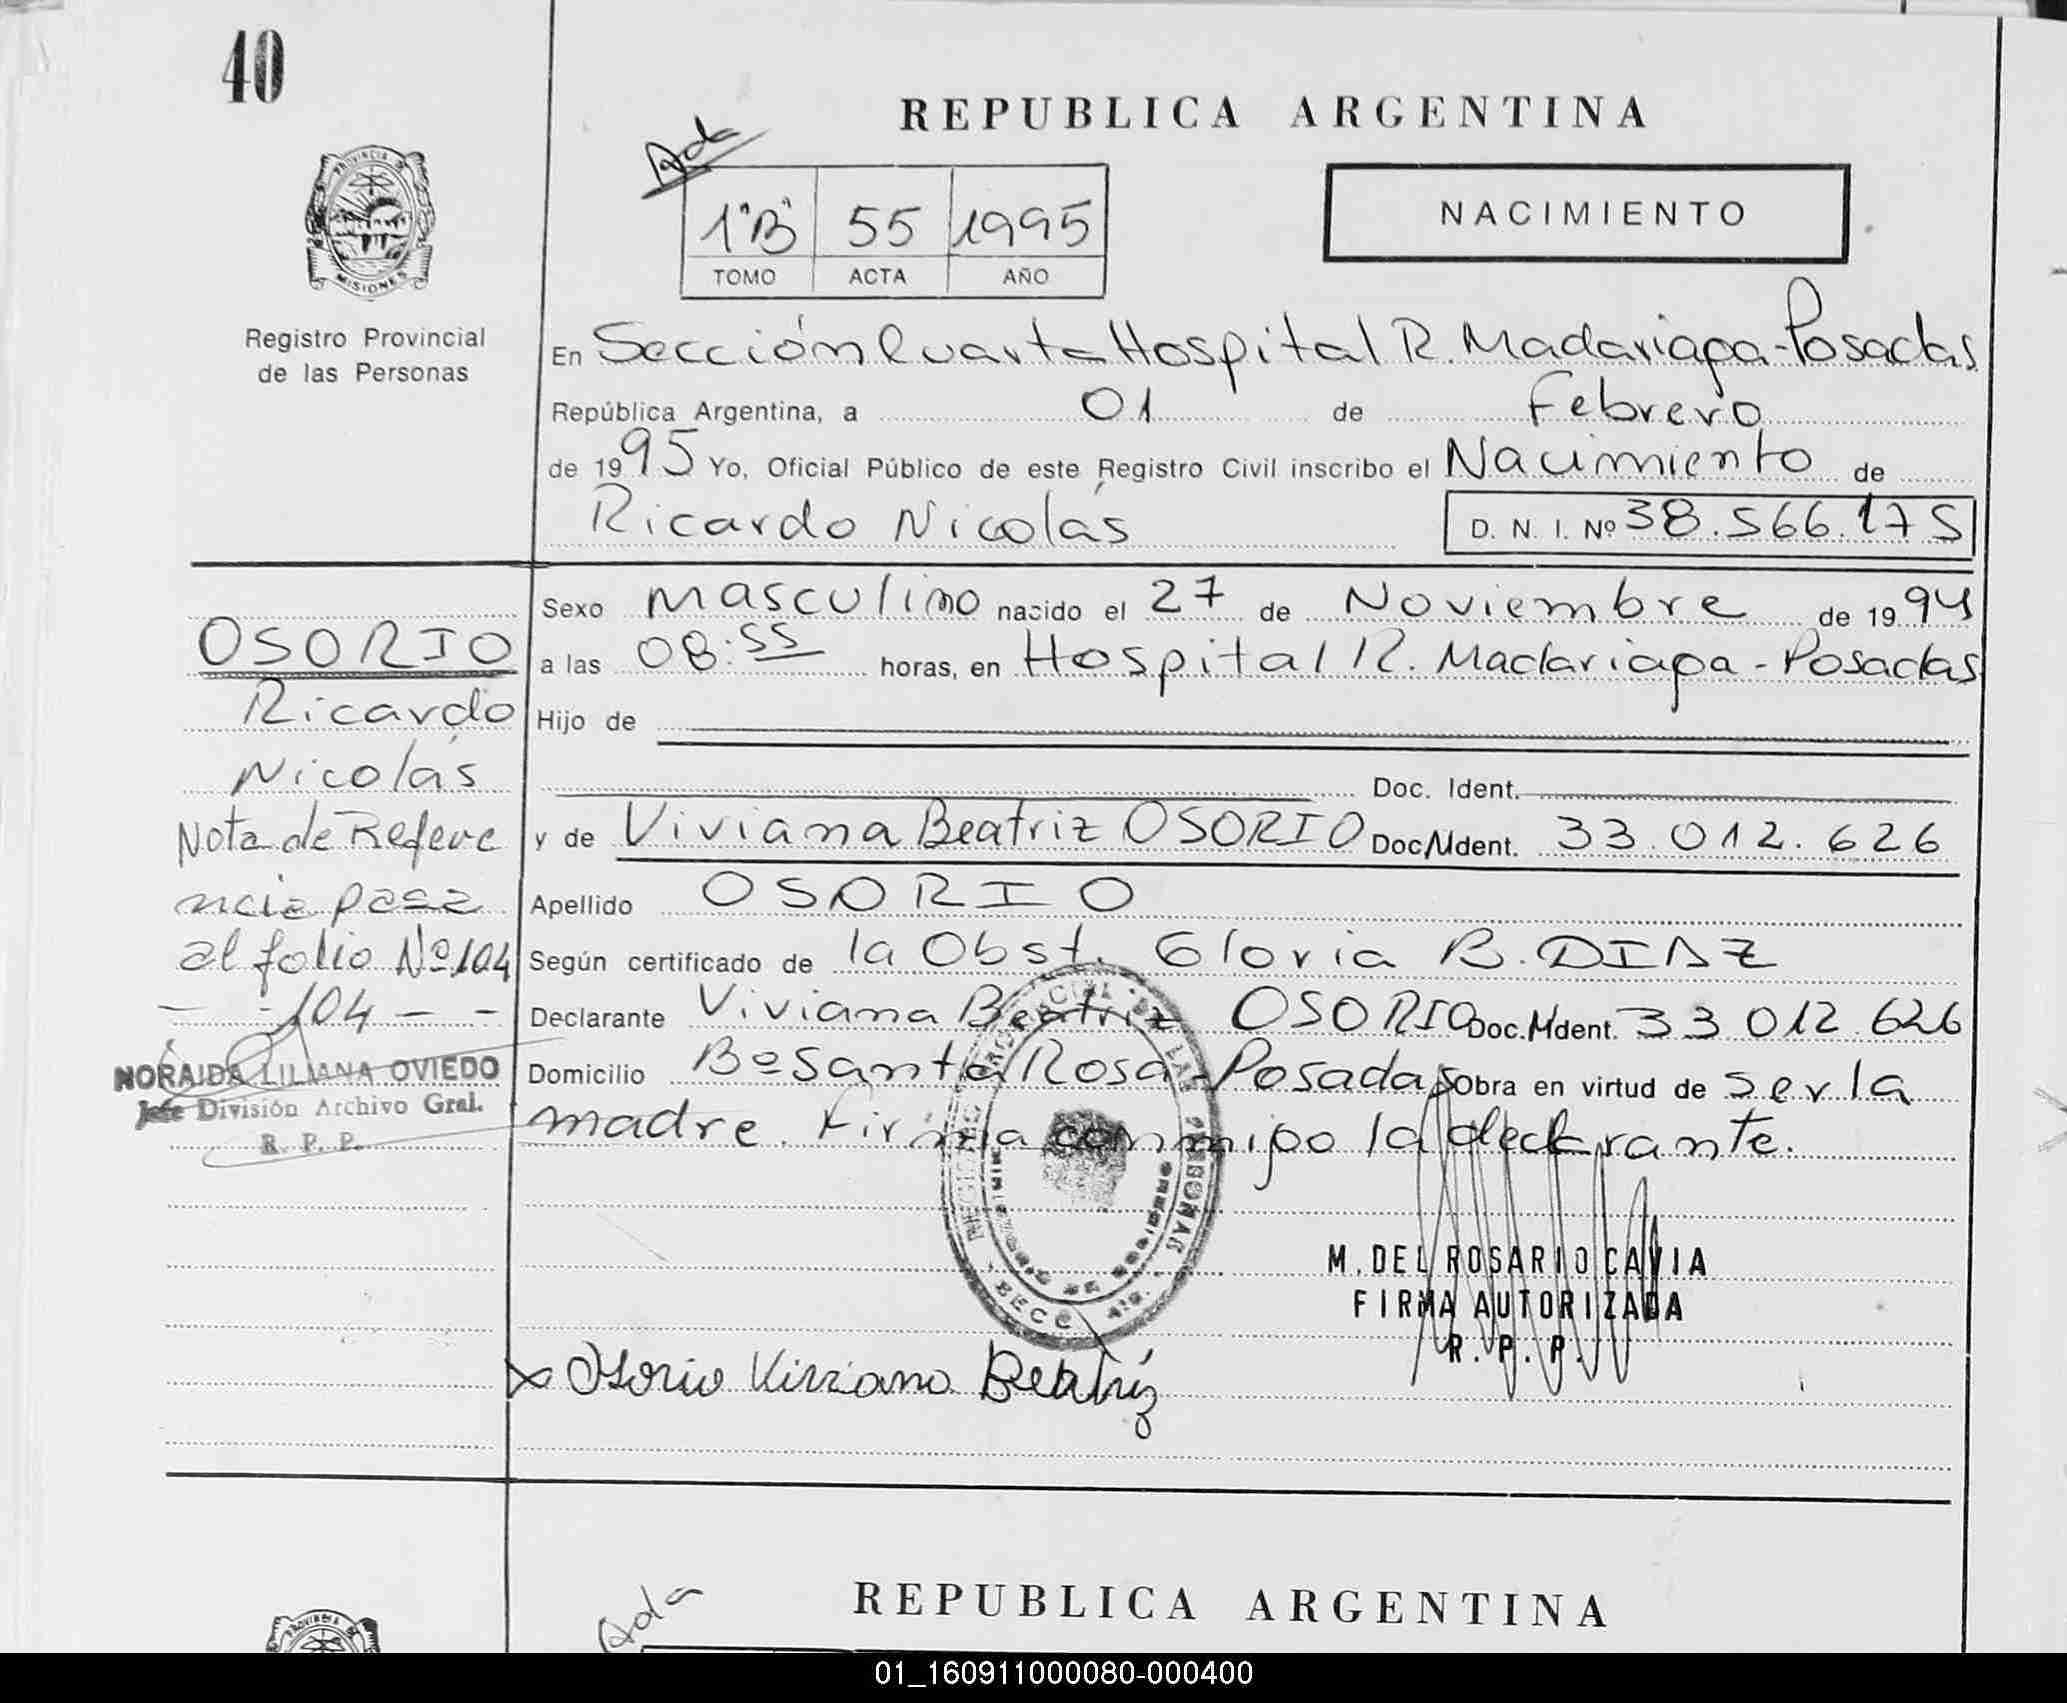 40
REPUBLICA ARGENTINA
Ada
1"B" 55 1995
TOMO ACTA AÑO
NACIMIENTO
PROVINCIA DE
MISIONES
Registro Provincial
de las Personas
En Sección Cuarta Hospital R. Madariaga-Posadas
República Argentina, a 01 de Febrero
de 1995 Yo, Oficial Público de este Registro Civil inscribo el Nacimiento de
Ricardo Nicolás D. N. I. Nº 38.566.175
Sexo masculino nacido el 27 de Noviembre de 1994
a las 08:55 horas, en Hospital R. Madariaga - Posadas
Hijo de
Doc. Ident.
y de Viviana Beatriz OSORIO Doc. Ident. 33.012.626
Apellido OSORIO
Según certificado de la Obst. Gloria B. DIAZ
Declarante Viviana Beatriz OSORIO Doc. Ident. 33.012.626
Domicilio Bº Santa Rosa-Posadas Obra en virtud de ser la
madre. Firma conmigo la declarante.
OSORIO
Ricardo
Nicolás
Nota de Refere
ncia pasa
al folio Nº 104
- - 104 - -
NORAIDA LILIANA OVIEDO
Jefe División Archivo Gral.
R. P. P.
M. DEL ROSARIO CAVIA
FIRMA AUTORIZADA
R. P. P.
Osorio Viviana Beatriz
Ada
REPUBLICA ARGENTINA
01_160911000080-000400